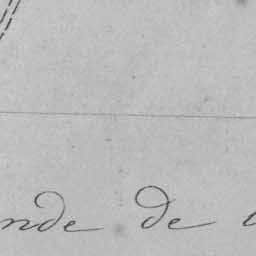 nde de